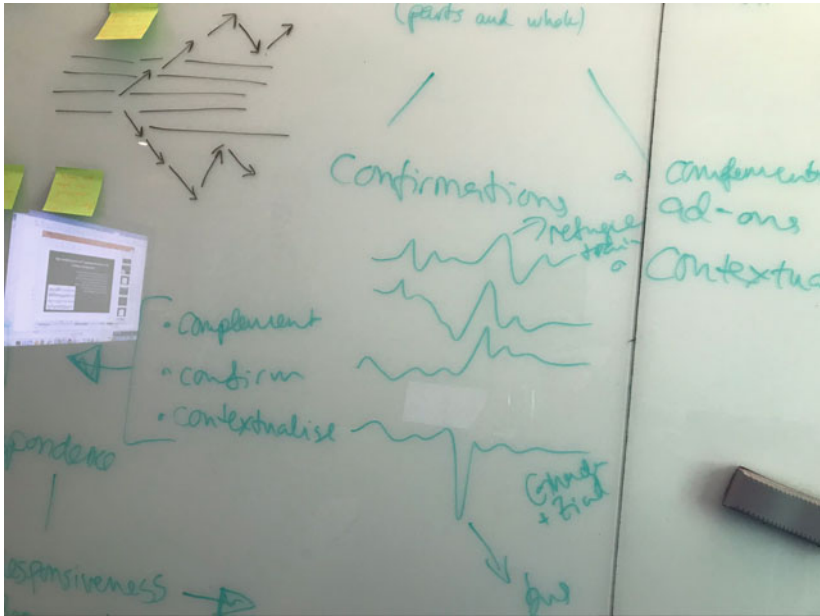 (parts and whole)
Confirmations
complement
ad-ons
Contextua
• complement
• confirm
• contextualise
pondence
esponsiveness